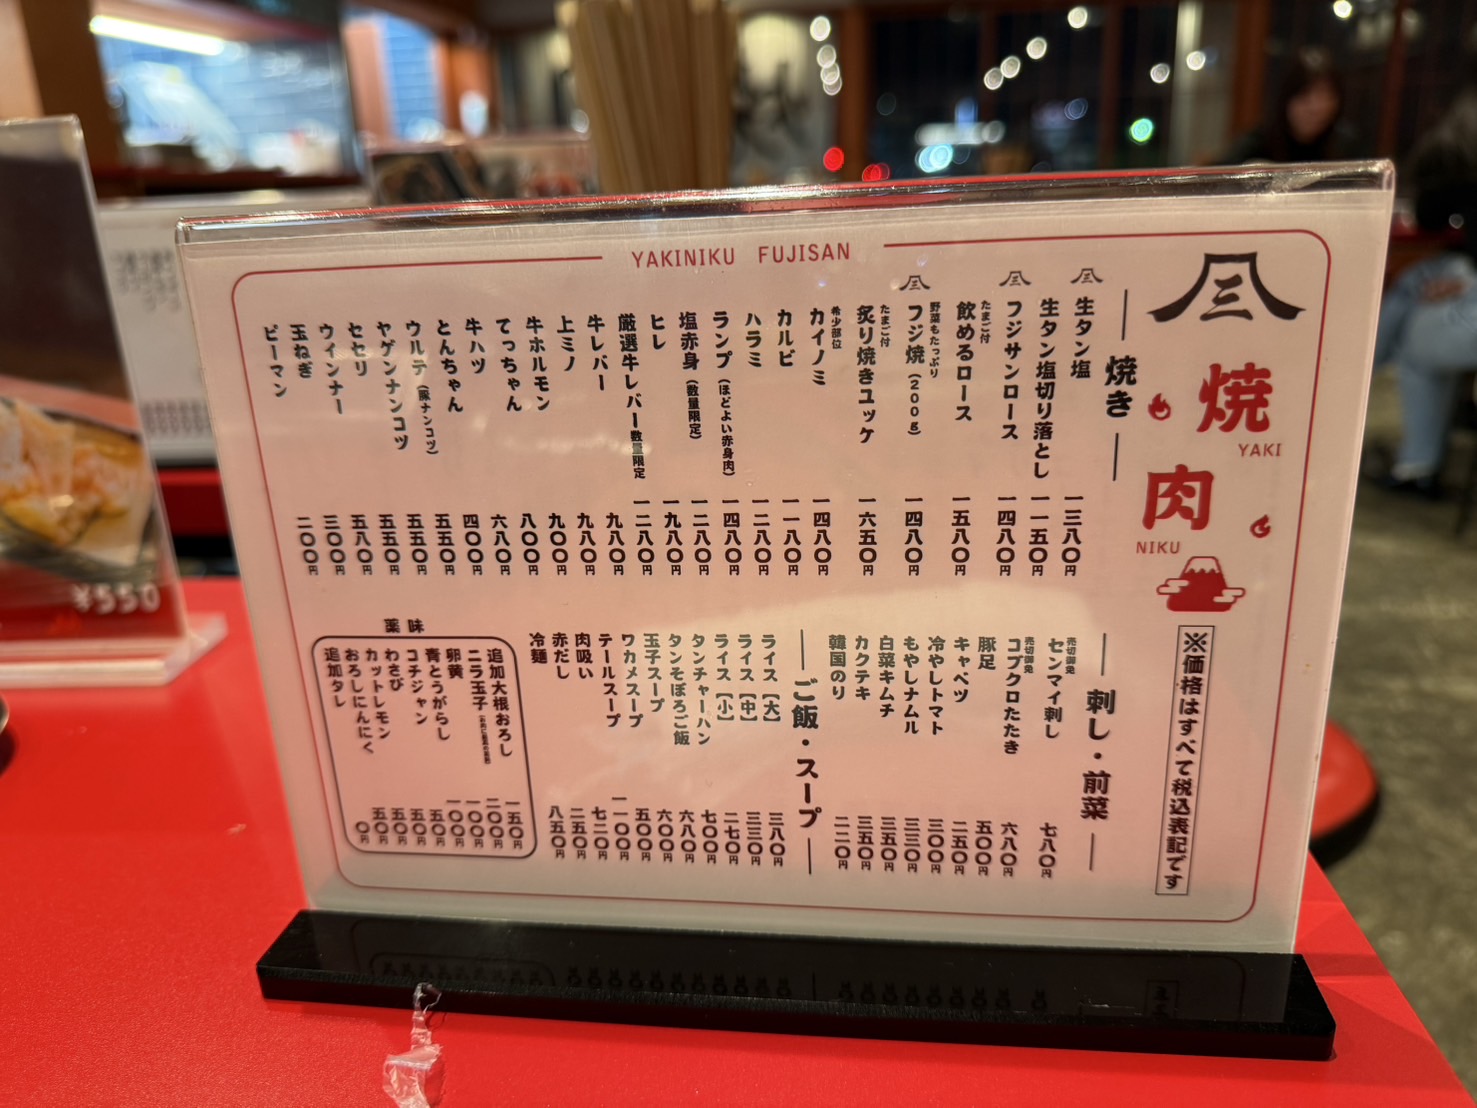 YAKINIKU FUJISAN
三
焼
YAKI
肉
NIKU
※価格はすべて税込表記です
焼き
生タン塩 一三八〇円
生タン塩切り落とし 一一五〇円
フジサンロース 一四八〇円
たまご付
飲めるロース 一五八〇円
野菜もたっぷり
フジ焼(200g) 一四八〇円
たまご付
炙り焼きユッケ 一六五〇円
希少部位
カイノミ 一四八〇円
カルビ 一一八〇円
ハラミ 一二八〇円
ランプ(ほどよい赤身肉) 一四八〇円
塩赤身(数量限定) 一二八〇円
ヒレ 一九八〇円
厳選牛レバー数量限定 一二八〇円
牛レバー 九八〇円
上ミノ 九八〇円
牛ホルモン 九〇〇円
てっちゃん 八〇〇円
牛ハツ 六八〇円
とんちゃん 四〇〇円
ウルテ(豚ナンコツ) 五五〇円
ヤゲンナンコツ 五五〇円
セセリ 五五〇円
ウインナー 五八〇円
玉ねぎ 三〇〇円
ピーマン 二〇〇円
刺し・前菜
売切御免
センマイ刺し 七八〇円
売切御免
コブクロたたき 六八〇円
豚足 五〇〇円
キャベツ 二五〇円
冷やしトマト 三〇〇円
もやしナムル 三三〇円
白菜キムチ 三五〇円
カクテキ 三五〇円
韓国のり 二二〇円
ご飯・スープ
ライス【大】 三八〇円
ライス【中】 三三〇円
ライス【小】 二七〇円
タンチャーハン 七〇〇円
タンそぼろご飯 六八〇円
玉子スープ 六〇〇円
ワカメスープ 五〇〇円
テールスープ 一一〇〇円
肉吸い 七二〇円
赤だし 二五〇円
冷麺 八五〇円
薬味
追加大根おろし 一五〇円
ニラ玉子 二〇〇円
卵黄 一〇〇円
青とうがらし 一〇〇円
コチジャン 五〇円
わさび 五〇円
カットレモン 五〇円
おろしにんにく 五〇円
追加タレ 〇円
¥550